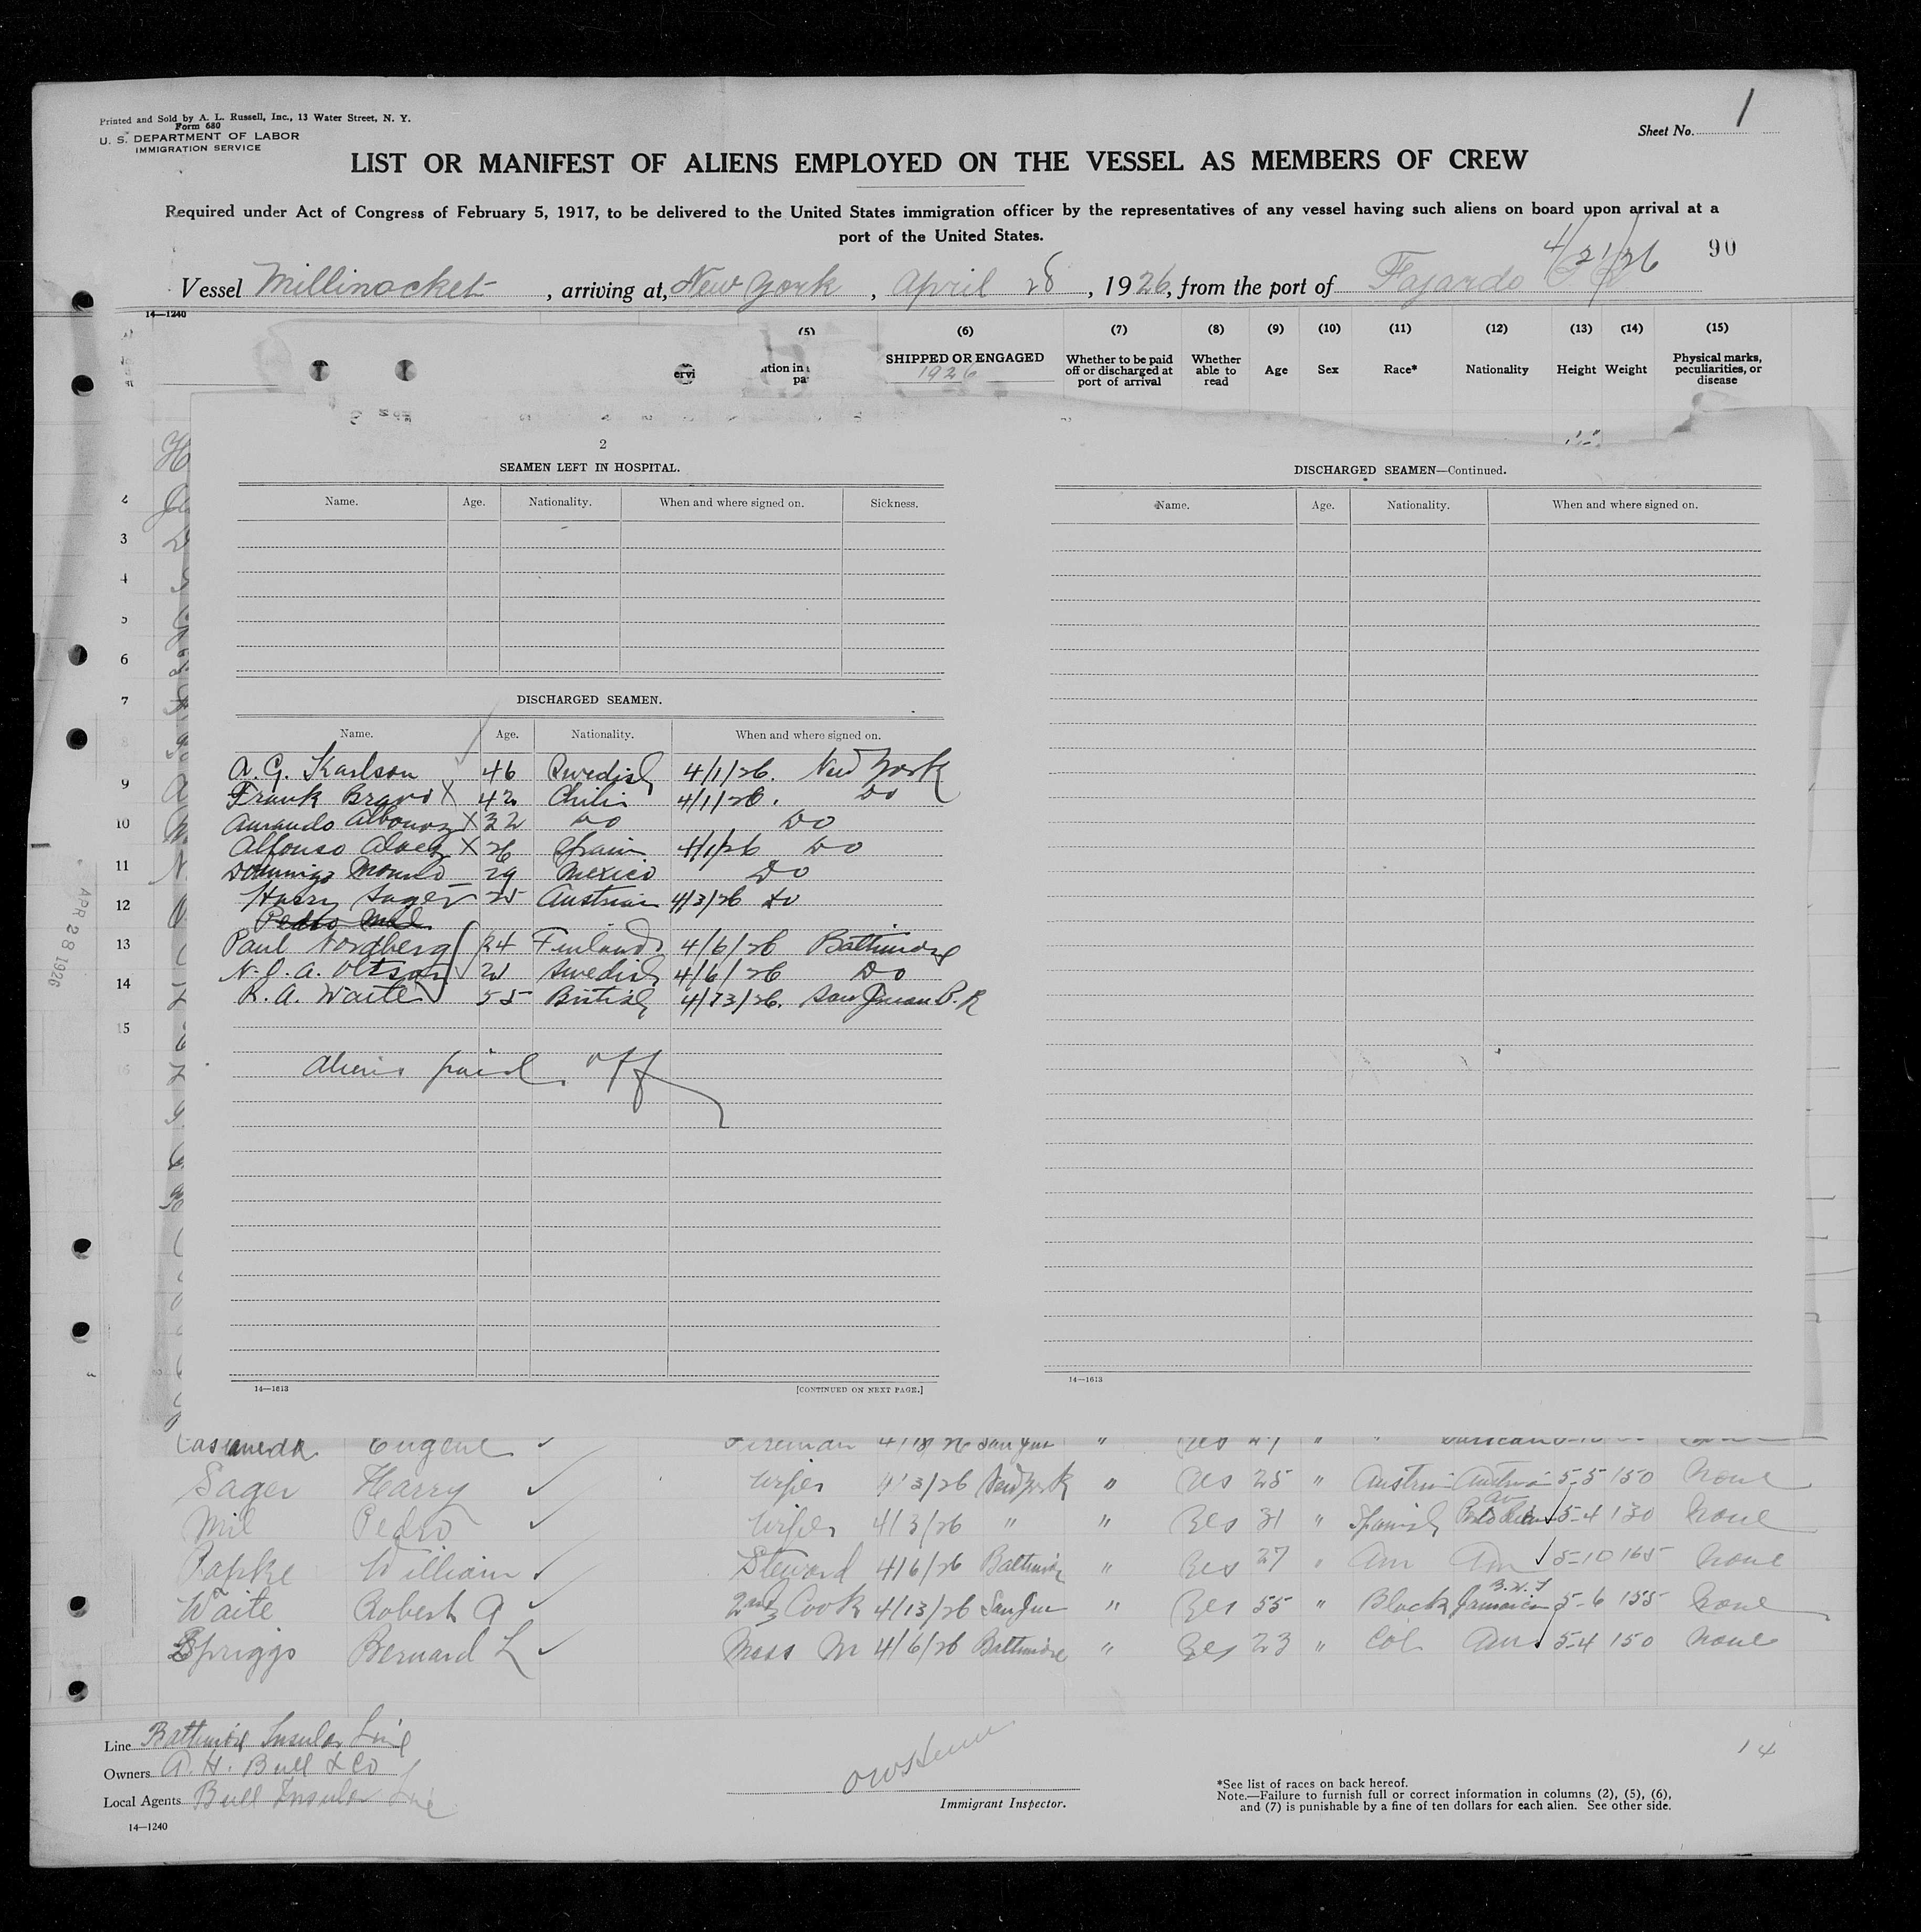 Printed and Sold by A. L. Russell, Inc., 13 Water Street, N. Y.
Form 680
U. S. DEPARTMENT OF LABOR
IMMIGRATION SERVICE
Sheet No. 1
LIST OR MANIFEST OF ALIENS EMPLOYED ON THE VESSEL AS MEMBERS OF CREW
Required under Act of Congress of February 5, 1917, to be delivered to the United States immigration officer by the representatives of any vessel having such aliens on board upon arrival at a
port of the United States.
4/21/26 90
Vessel Millinocket, arriving at, New York, April 28, 1926, from the port of Fajardo P R
14—1240
(5) (6) (7) (8) (9) (10) (11) (12) (13) (14) (15)
SHIPPED OR ENGAGED 1926 Whether to be paid off or discharged at port of arrival Whether able to read Age Sex Race* Nationality Height Weight Physical marks, peculiarities, or disease
2
SEAMEN LEFT IN HOSPITAL.
Name. Age. Nationality. When and where signed on. Sickness.
DISCHARGED SEAMEN.
Name. Age. Nationality. When and where signed on.
A. G. Karlson 46 Swedish 4/1/26. New York
Frank Bravo X 42 Chili 4/1/26. Do
X 32 Do Do
Alfonso X 26 Spain 4/1/26 Do
Domingo 29 Mexico Do
Harry Sager 25 Austrian 4/3/26 Do
Pedro Mil
Paul Nordberg 24 Finland 4/6/26 Baltimore
N. J. A. Oltson 21 Swedish 4/6/26 Do
R. A. Waite 55 British 4/13/26. San Juan P. R
Aliens paid off
14—1613 [CONTINUED ON NEXT PAGE.]
DISCHARGED SEAMEN—Continued.
Name. Age. Nationality. When and where signed on.
14—1613
3
4
5
6
7
8
9
10
11
12
13
14
15
16
APR 28 1926
Castaneda Eugene Fireman 4/18/26 San Jua " Yes 27 "
Sager Harry Wiper 4/3/26 New York " Yes 25 " Austrian Austria 5-5 150 None
Mil Pedro Wiper 4/3/26 " " Yes 31 " Spanish Porto Rican 5-4 130 None
Papke William Steward 4/6/26 Baltimore " Yes 27 " Am Am 5-10 165 None
Waite Robert A 2nd Cook 4/13/26 San Jua " Yes 55 " Black Jamaica B.W.I 5-6 155 None
Spriggs Bernard L Mess M 4/6/26 Baltimore " Yes 23 " Col Am 5-4 150 None
Line Baltimore Insular Line
Owners A. H. Bull & Co
Local Agents Bull Insular Line
14—1240
Immigrant Inspector.
14
*See list of races on back hereof.
Note.—Failure to furnish full or correct information in columns (2), (5), (6),
and (7) is punishable by a fine of ten dollars for each alien. See other side.